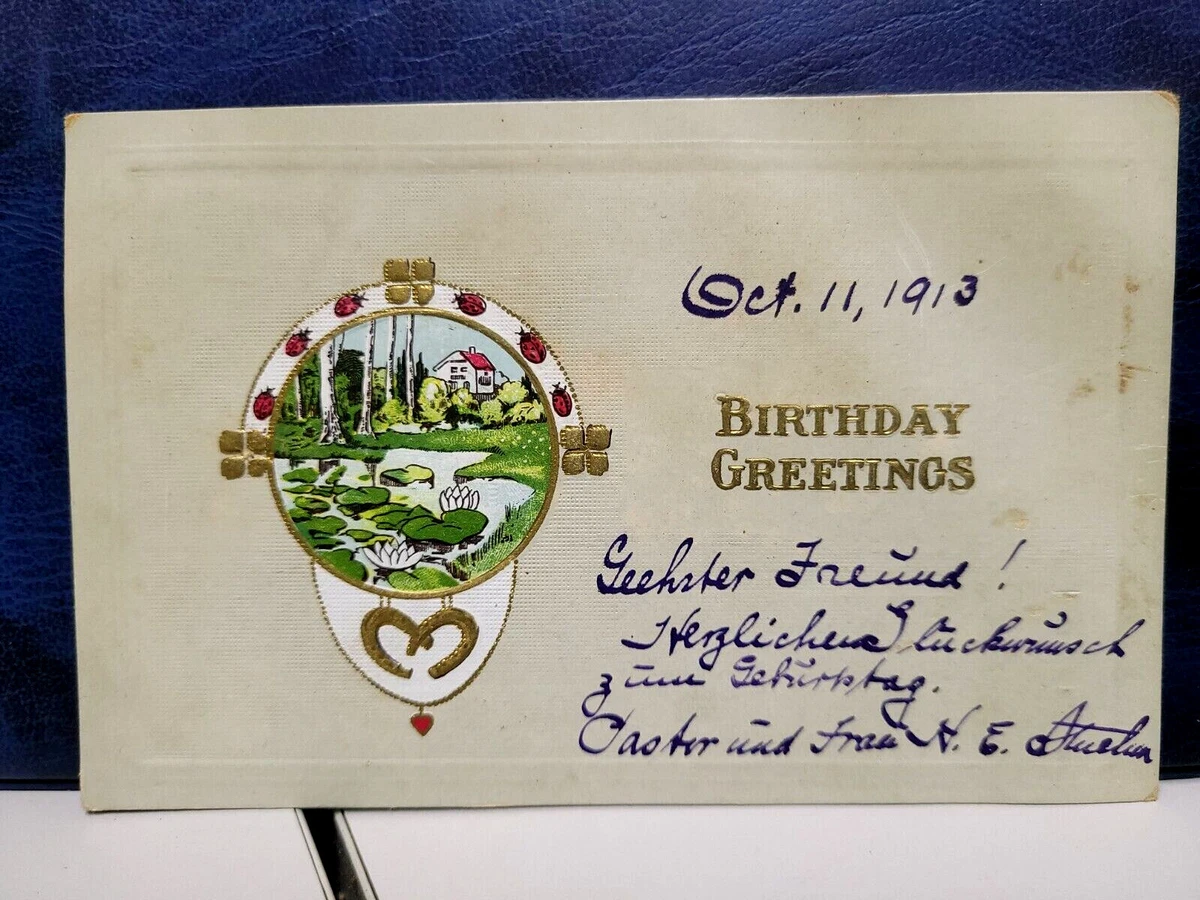 Oct. 11, 1913
BIRTHDAY
GREETINGS
Geehrter Freund!
Herzlichen Glückwunsch
zum Geburtstag.
Pastor und Frau H. E.